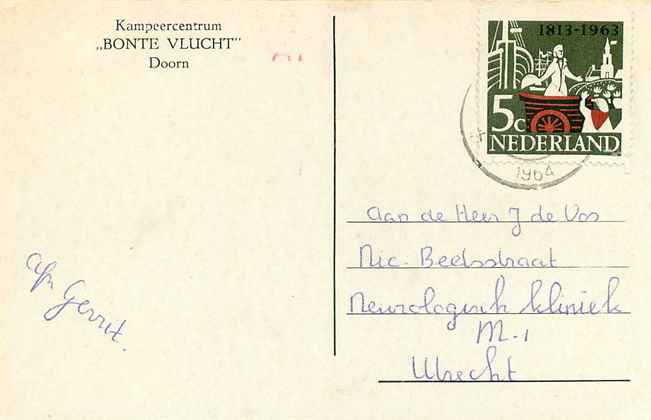 Kampeercentrum
„BONTE VLUCHT"
Doorn
1813-1963
5c
NEDERLAND
1964
Aan de Heer J de Vos
Nic. Beetsstraat
Neurologisch kliniek
M.1
Utrecht
afz Gerrit.